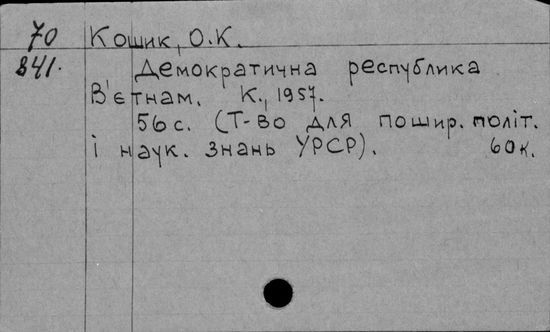 70 Кошик, О.К.
841. Демократична республика
В'єтнам. К., 1957.
56 с. (Т-во для пошир. політ.
і наук. знань УРСР). 60к.